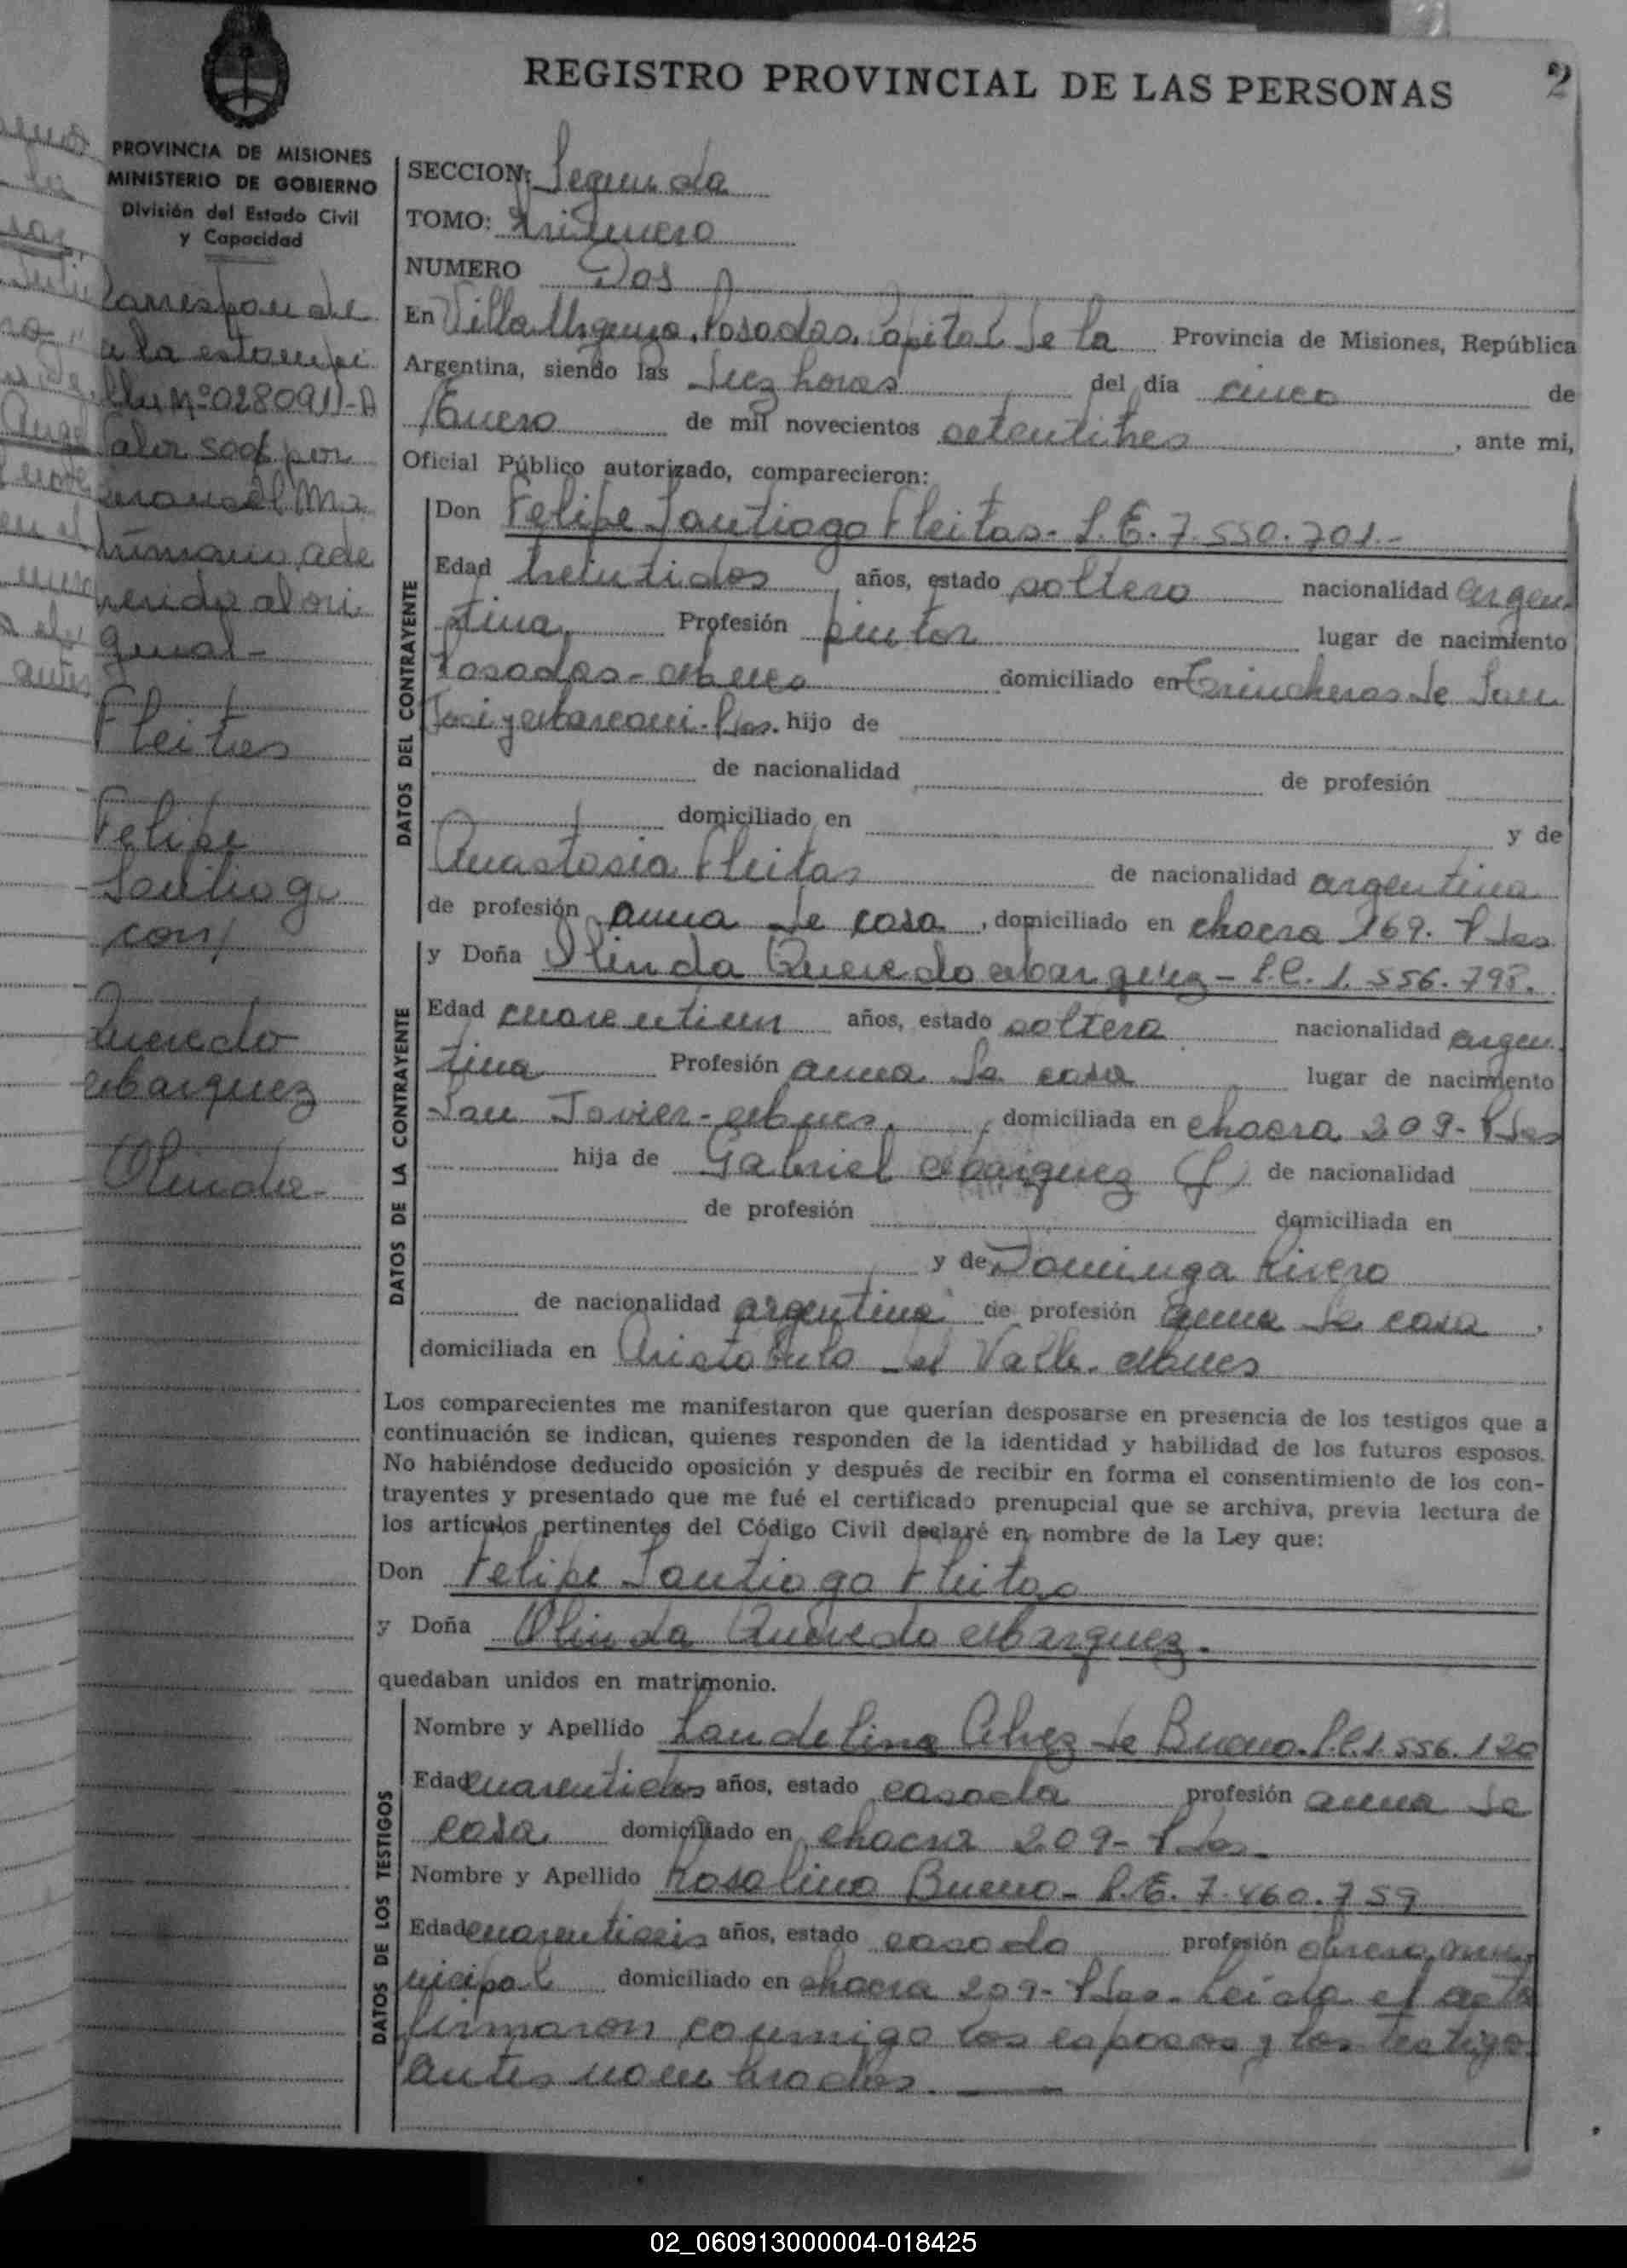 REGISTRO PROVINCIAL DE LAS PERSONAS
2
PROVINCIA DE MISIONES
MINISTERIO DE GOBIERNO
División del Estado Civil
y Capacidad
Corresponde
a la estampi
lla Nº 0280911-A
Valor 500$ por
Matrimonio, ade
herida al ori
ginal-
Fleitas
Felipe
Santiago
con/
Quevedo
Marquez
Olinda-
SECCION: Segunda
TOMO: Primero
NUMERO Dos
En Villa Urquiza, Posadas, Capital de la Provincia de Misiones, República
Argentina, siendo las diez horas del día cinco de
Enero de mil novecientos setentitres, ante mi,
Oficial Público autorizado, comparecieron:
DATOS DEL CONTRAYENTE
Don Felipe Santiago Fleitas- L.E. 7.550.701.-
Edad treintidos años, estado soltero nacionalidad argen
tina, Profesión pintor lugar de nacimiento
Posadas- Mnes domiciliado en Trincheras de San
José y Marconi- Pdas. hijo de
de nacionalidad de profesión
domiciliado en y de
Anastasia Fleitas de nacionalidad argentina
de profesión ama de casa, domiciliado en chacra 169. Pdas
DATOS DE LA CONTRAYENTE
y Doña Olinda Quevedo Marquez- L.C. 1.556.798.
Edad cuarentiun años, estado soltera nacionalidad argen
tina Profesión ama de casa lugar de nacimiento
San Javier- Mnes, domiciliada en chacra 209- Pdas
hija de Gabriel Marquez (f) de nacionalidad
de profesión domiciliada en
y de Dominga Rivero
de nacionalidad argentina de profesión ama de casa,
domiciliada en Aristobulo del Valle- Mnes
Los comparecientes me manifestaron que querían desposarse en presencia de los testigos que a
continuación se indican, quienes responden de la identidad y habilidad de los futuros esposos.
No habiéndose deducido oposición y después de recibir en forma el consentimiento de los con-
trayentes y presentado que me fué el certificado prenupcial que se archiva, previa lectura de
los artículos pertinentes del Código Civil declaré en nombre de la Ley que:
Don Felipe Santiago Fleitas
y Doña Olinda Quevedo Marquez.
quedaban unidos en matrimonio.
DATOS DE LOS TESTIGOS
Nombre y Apellido Laudelina Alvez de Bueno. L.C. 1.556.120
Edad cuarentidos años, estado casada profesión ama de
casa domiciliado en chacra 209- Pdas.
Nombre y Apellido Rosalino Bueno- L.E. 7.460.759
Edad cuarentiseis años, estado casado profesión obrero mu
nicipal domiciliado en chacra 209- Pdas- Leida el acta
firmaron conmigo los esposos y los testigos
antes nombrados.
02_060913000004-018425